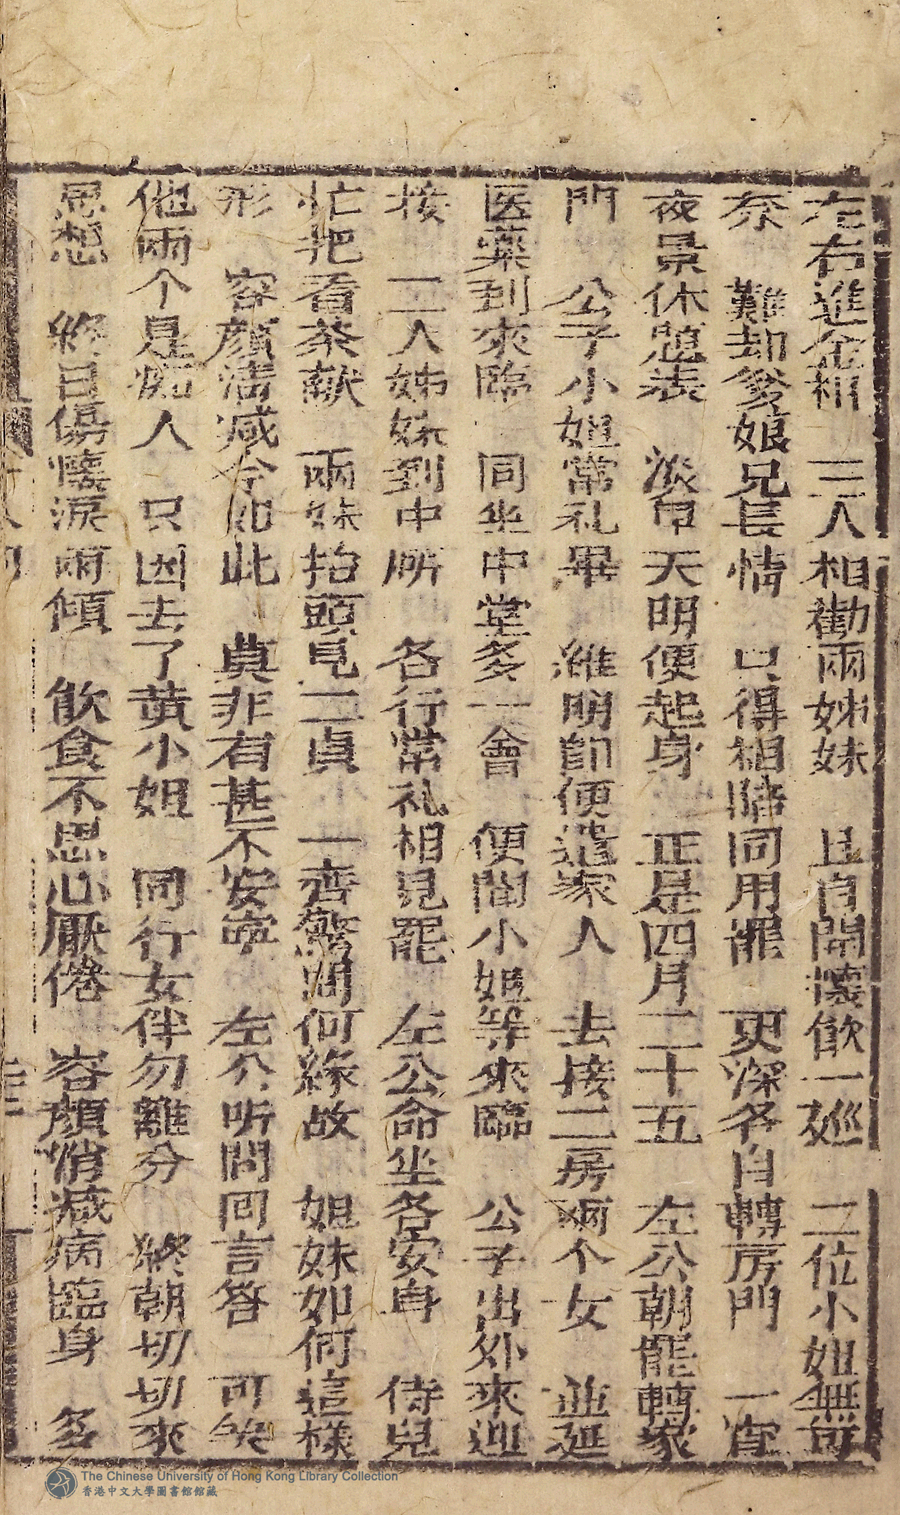 左右進金樽　三人相勸兩姊妹　且自開懷飲一廵　二位小姐無可
奈　難却爹娘兄長情　只得相陪同用罷　更深各自轉房門　一宵
夜景休題表　淡早天明便起身　正是四月二十五　左公朝罷轉家
門　公子小姐常礼畢　維明即便遣家人　去接二房兩个女　並延
医藥到來臨　同坐中堂多一會　便聞小姐等來臨　公子出外來迎
接　二人姊妹到中所　各行常礼相見罷　左公命坐各安身　侍兒
忙把看茶献　兩妹抬頭見二貞　一齊驚問何緣故　姐妹如何這樣
形　容顔清减今如此　莫非有甚不安寕　左公听問回言答　可笑
他兩个是痴人　只因去了黄小姐　同行女伴勿離分　終朝切切來
思想　終日傷懷淚雨傾　飲食不思心厭倦　容顔悄减病臨身　多
The Chinese University of Hong Kong Library Collection
香港中文大學圖書館館藏